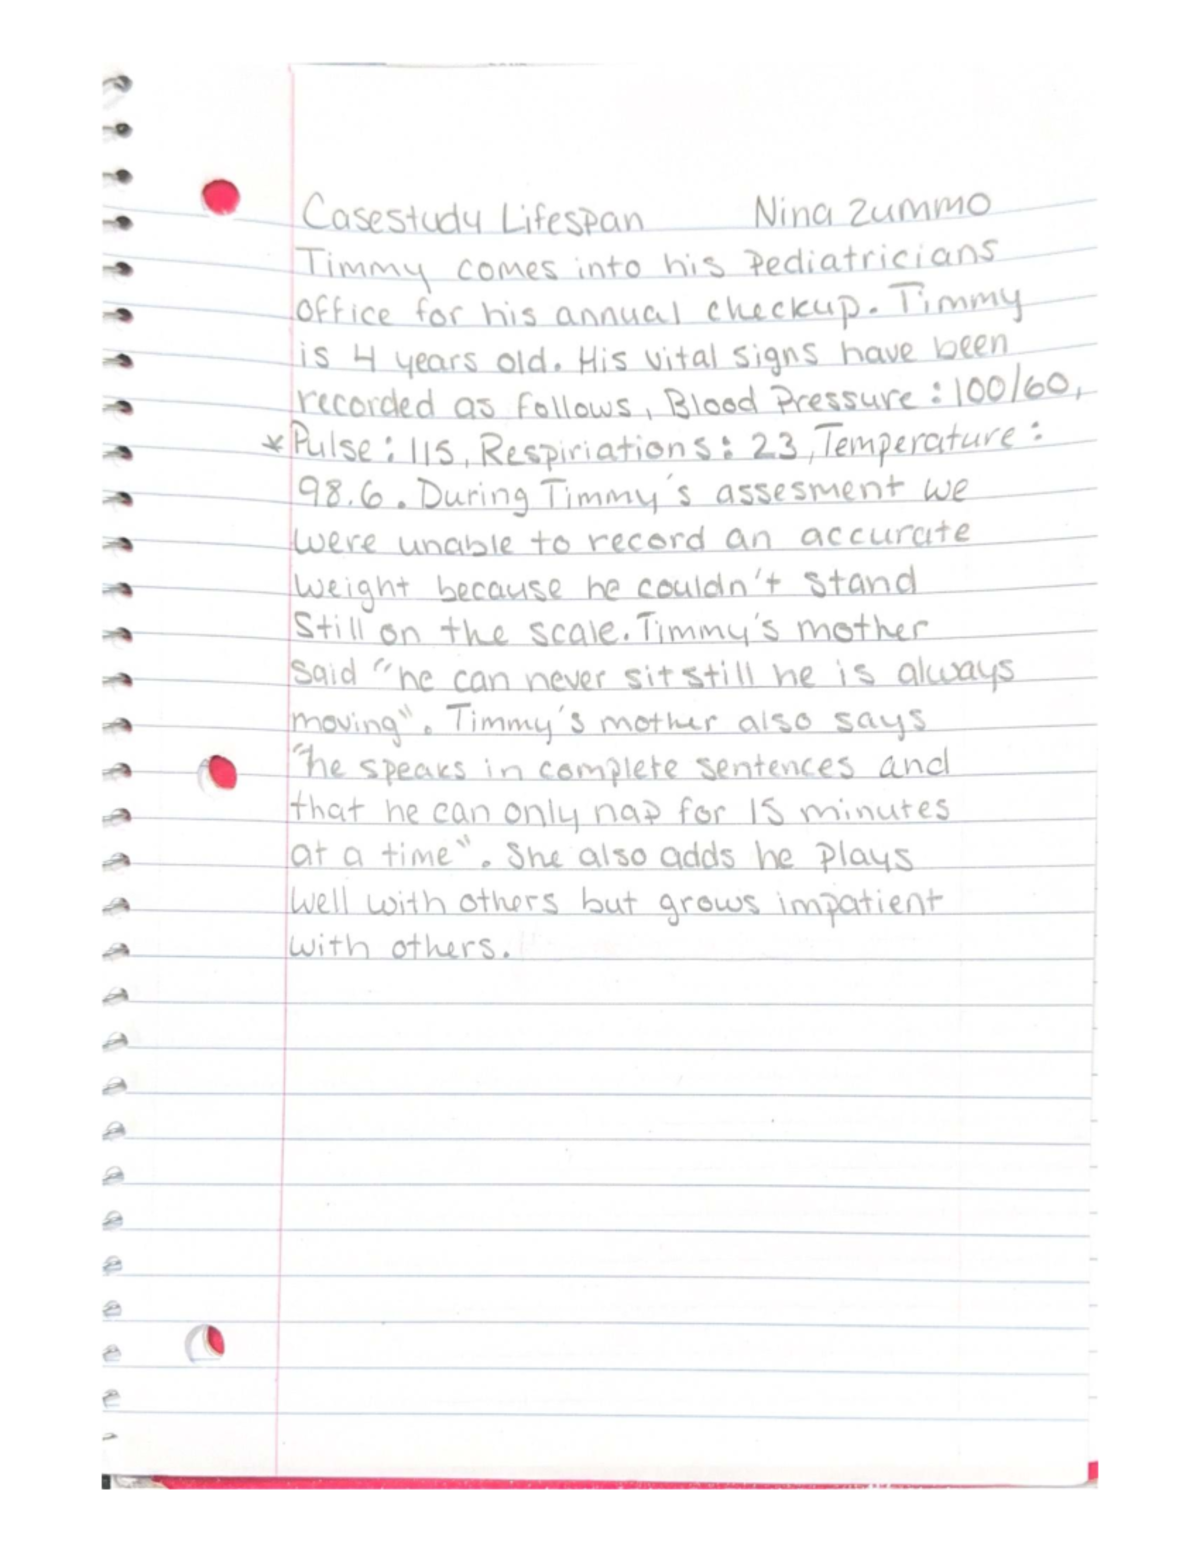 Casestudy Lifespan Nina Zummo
Timmy comes into his Pediatricians
office for his annual checkup. Timmy
is 4 years old. His vital signs have been
recorded as follows, Blood Pressure: 100/60,
*Pulse: 115, Respiriations: 23, Temperature:
98.6. During Timmy's assesment we
were unable to record an accurate
weight because he couldn't stand
Still on the scale. Timmy's mother
said "he can never sit still he is always
moving". Timmy's mother also says
"he speaks in complete sentences and
that he can only nap for 15 minutes
at a time". She also adds he plays
well with others but grows impatient
with others.